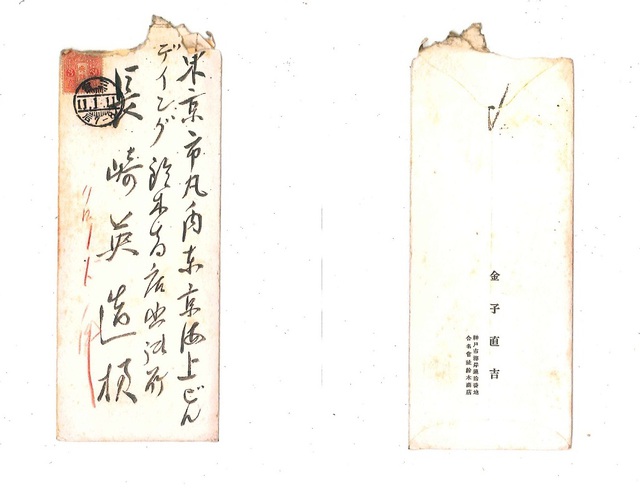 東京市丸ノ内東京海上ビル
デイング鈴木商店出張所
長崎英造様
11.1.11
金子直吉
神戸市海岸通拾番地
合名会社鈴木商店